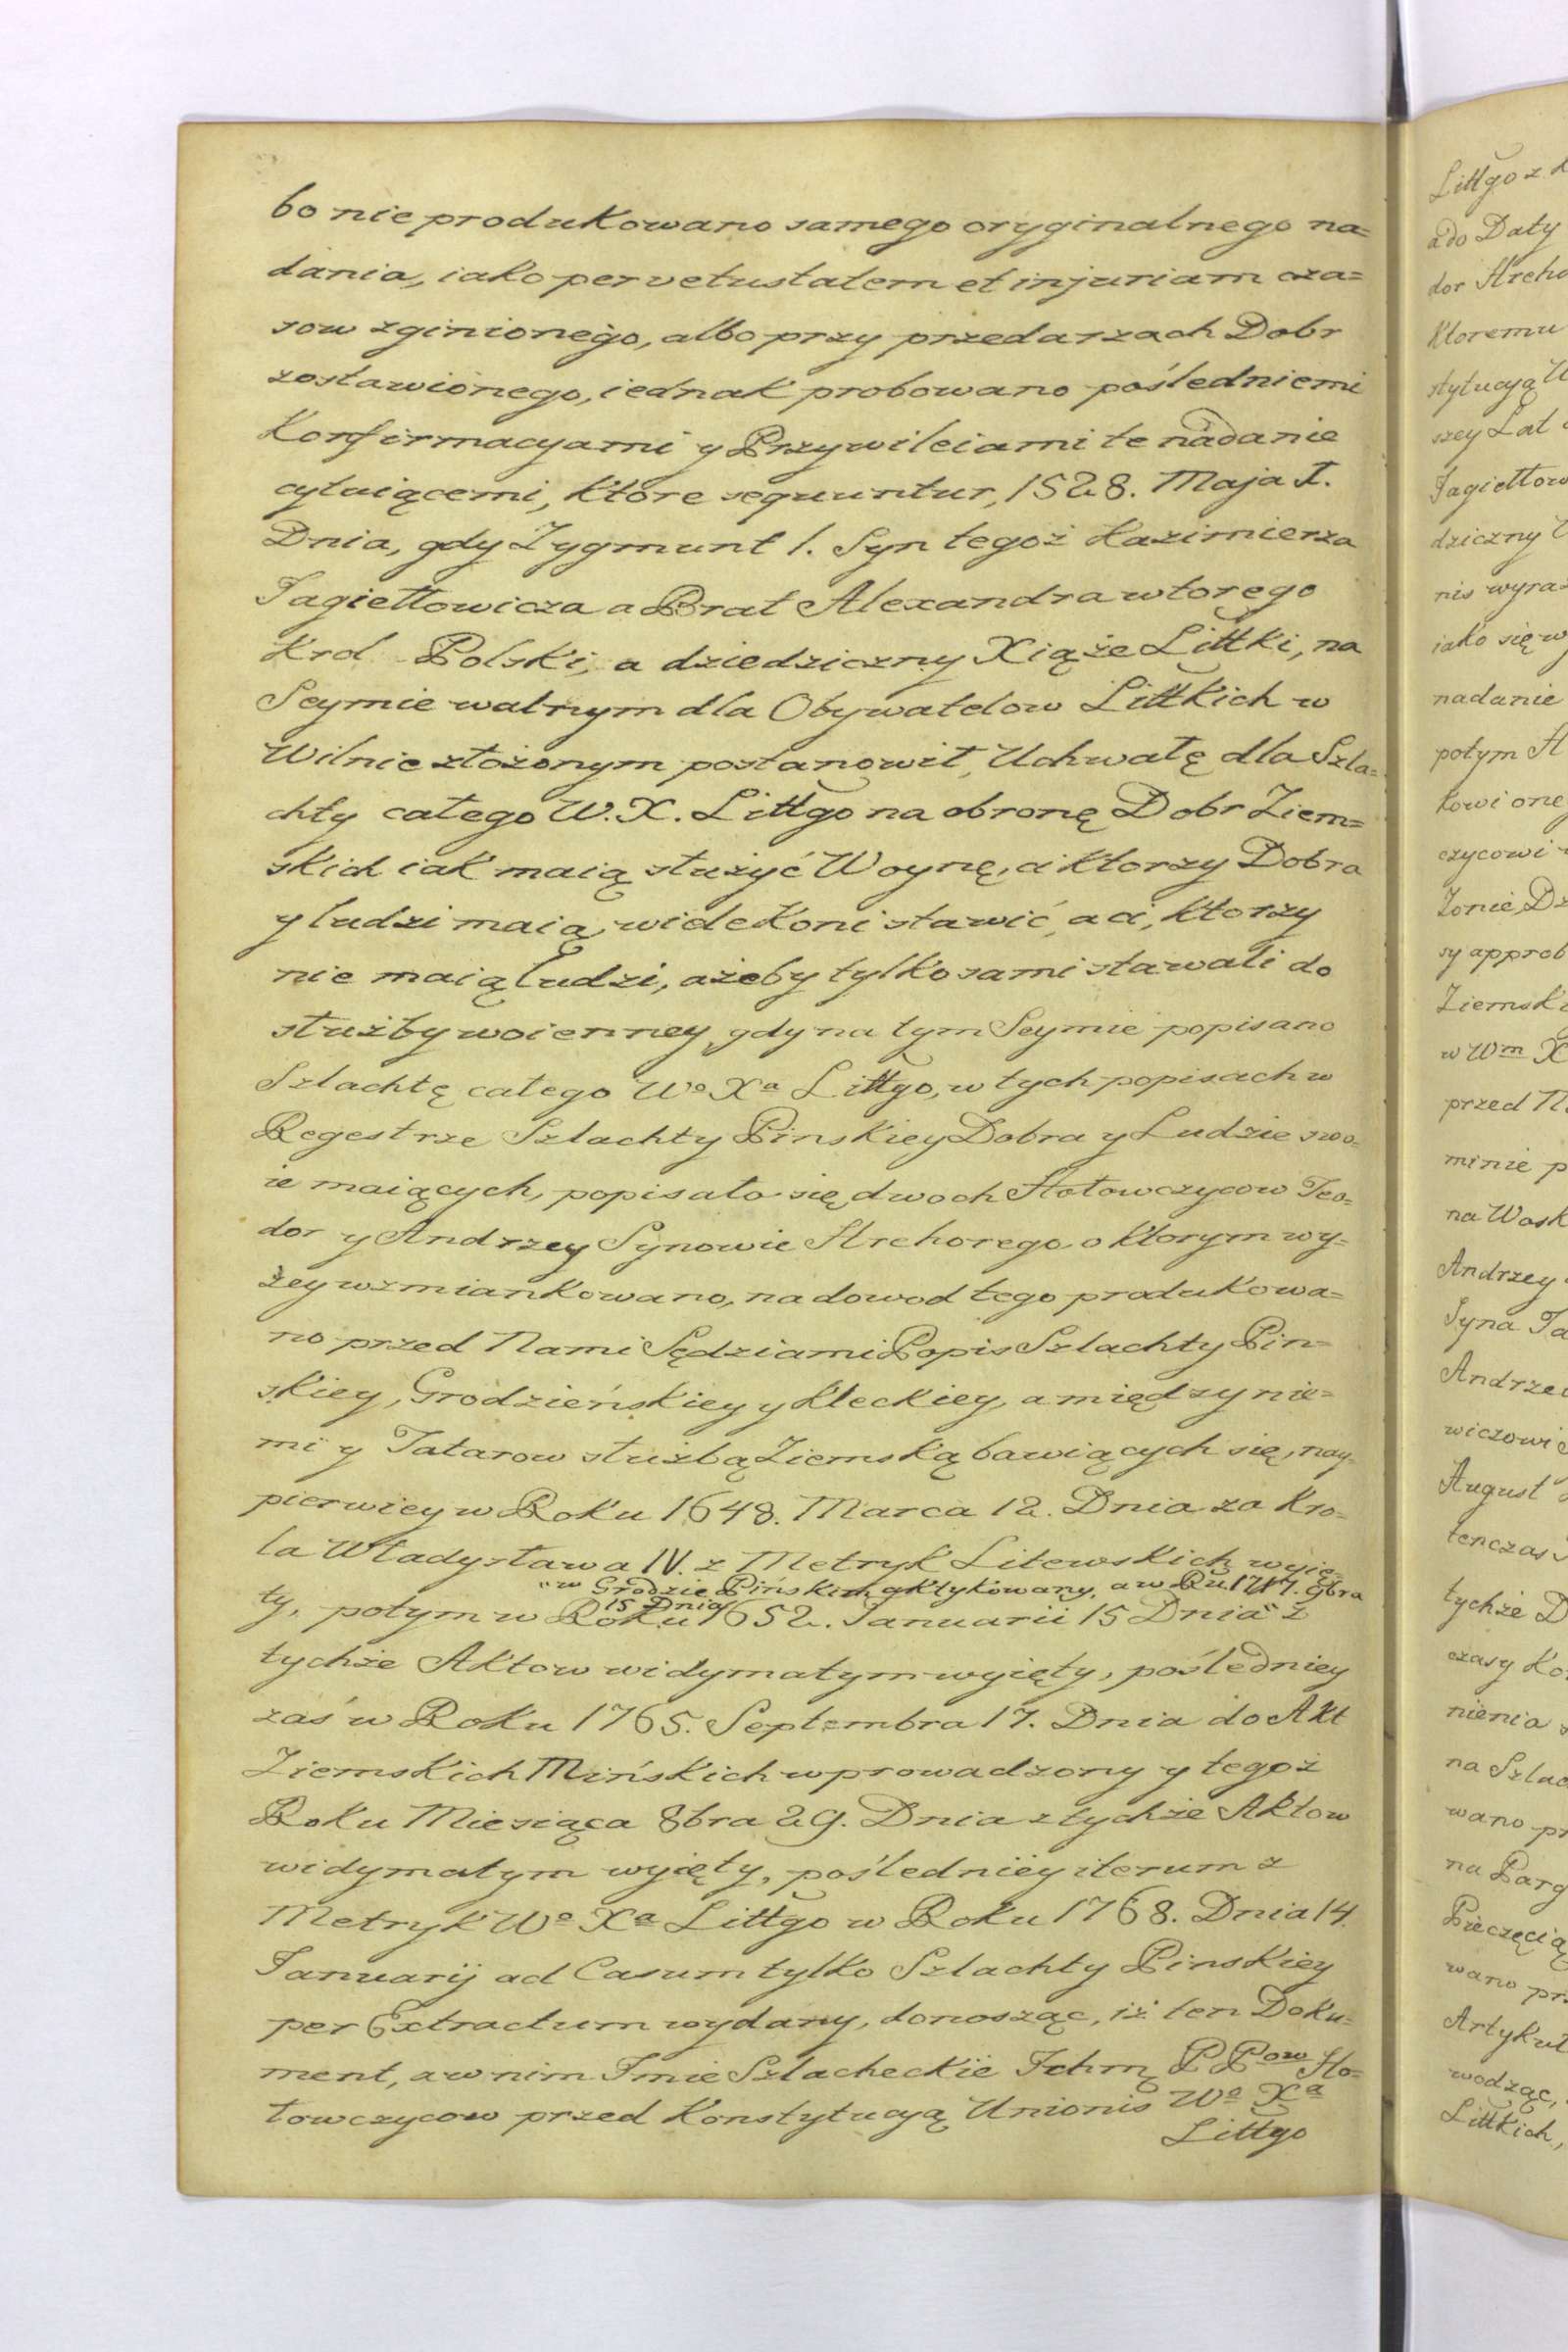 bo nie produkowano samego oryginalnego na=
dania, iako per vetustatem et injuriam cza=
sow zginionego, albo przy przedarzach Dobr
zostawionego, iednak probowano pośledniemi
Konfirmacyami y Przywileiami te nadanie
cytuiącemi, które sequuntur, 1528. Maja 1.
Dnia, gdy Zygmunt 1. Syn tegoż Kazimierza
Jagiełłowicza a Brat Alexandra wtorego
Krol Polski, a dziedziczny Xiąże Littki, na
Seymie walnym dla Obywatelow Littkich w
Wilnie złożonym postanowił, Uchwałę dla Szla=
chty całego W. X. Littgo na obronę Dobr Ziem=
skich iak maią służyć Woynę, a ktorzy Dobra
y ludzi maią, wiele Koni stawić, a ci, ktorzy
nie maią ludzi, ażeby tylko sami stawali do
służby woienney, gdy na tym Seymie popisano
Szlachtę całego Wo Xa Littgo, w tych popisach w
Regestrze Szlachty Pinskiey Dobra y Ludzie swo=
ie maiących, popisało się dwoch Hołowczycow Teo=
dor y Andrzey Synowie Hrehorego o ktorym wy=
żey wzmiankowano, na dowod tego produkowa=
no przed Nami Sędziami Popis Szlachty Pin=
skiey, Grodzieńskiey y Kleckiey, a między nie=
mi y Tatarow służbą Ziemską bawiących się, nay=
pierwiey w Roku 1648. Marca 12. Dnia za Kro=
la Władysława IV. z Metryk Litewskich wyię=
"w Grodzie Pińskim aktykowany, a w Ru 1717. 9bra
15 Dnia
ty, potym w Roku 1652. Januarii 15 Dnia" z
tychże Aktow widymatym wyięty, pośledniey
zaś w Roku 1765. Septembra 17. Dnia do Akt
Ziemskich Mińskich wprowadzony y tegoż
Roku Miesiąca 8bra 29. Dnia z tychże Aktow
widymatym wyięty, pośledniey iterum z
Metryk Wo Xa Littgo w Roku 1768. Dnia 14.
Januarij ad Casum tylko Szlachty Pinskiey
per Extractum wydany, donosząc, iż ten Doku=
ment, a w nim Imie Szlacheckie Ichmę P Pow Ho=
łowczycow przed Konstytucyą Unionis Wo Xa
Littgo
Littgo z
a do Daty
dor Hreho
Ktoremu
stytucyą
szey Lat
Jagiełłow
dziczny
nis wyra
iako się w
nadanie
potym H
kowi one
czycowi
Zonie D
sy approb
Ziemski
w Wm X
przed N
minie p
na Wosk
Andrzey
Syna Ja
Andrze
wiczowi
August
tenczas
tychże D
czasy Ko
nienia
na Szlac
wano pr
na Parg
Pieczęcią
wano pr
Artykuł
wodząc,
Littkich,